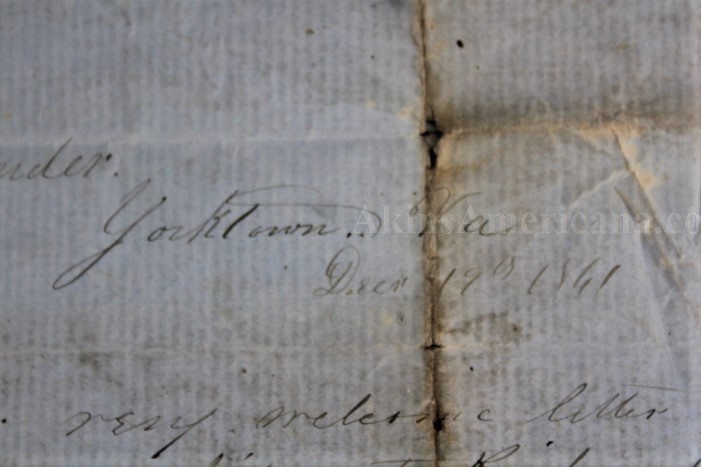 nder.
Yorktown. Va
AkinsAmericana.co
Decr 19th 1861
very welcome letter